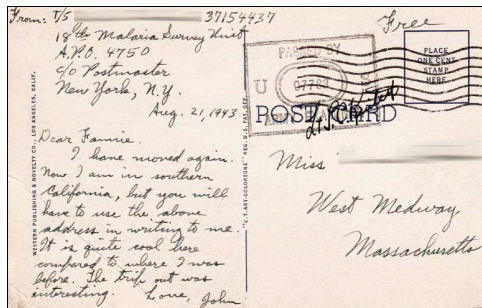 From: T/5 37154437
18th Malaria Survey Unit
A.P.O. 4750
c/o Postmaster
New York, N.Y.
Aug. 21, 1943
Dear Fannie.
I have moved again.
Now I am in southern
California, but you will
have to use the above
address in writing to me.
It is quite cool here
compared to where I was
before. The trip out was
interesting. Love, John
WESTERN PUBLISHING & NOVELTY CO., LOS ANGELES, CALIF.
"C.T. ART-COLORTONE" REG. U.S. PAT. OFF.
Free
PASSED BY
U S
07783
ARMY
POST CARD
PLACE
ONE CENT
STAMP
HERE
Miss
West Medway,
Massachusetts